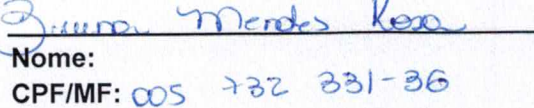 Bruna Mendes Rosa
Nome:
CPF/MF: 005 732 331-36